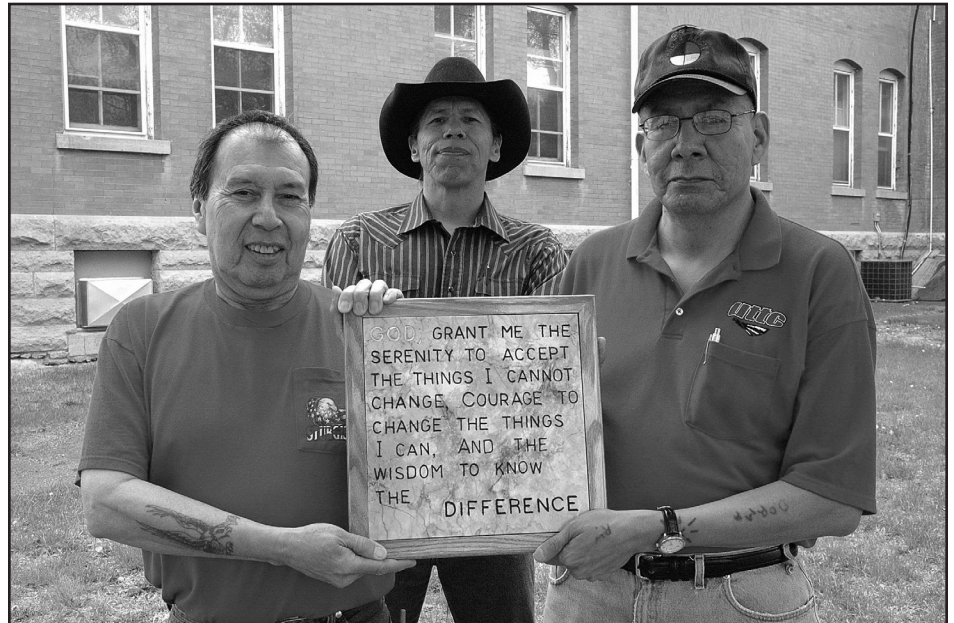 GOD, GRANT ME THE
SERENITY TO ACCEPT
THE THINGS I CANNOT
CHANGE, COURAGE TO
CHANGE THE THINGS
I CAN, AND THE
WISDOM TO KNOW
THE DIFFERENCE
STURGIS